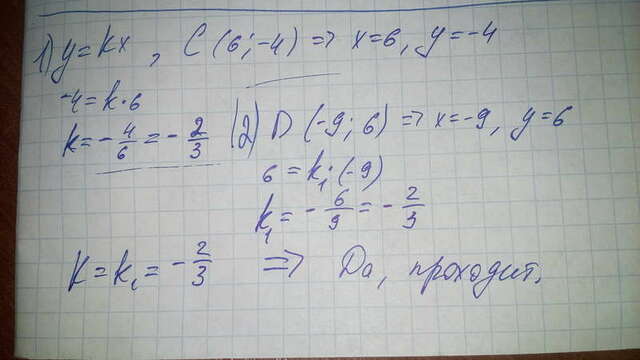 1) y = kx, C (6; -4) => x = 6, y = -4
-4 = k · 6
k = - 4/6 = - 2/3
2) D (-9; 6) => x = -9, y = 6
6 = k₁ · (-9)
k₁ = - 6/9 = - 2/3
k = k₁ = - 2/3 => Да, проходит.